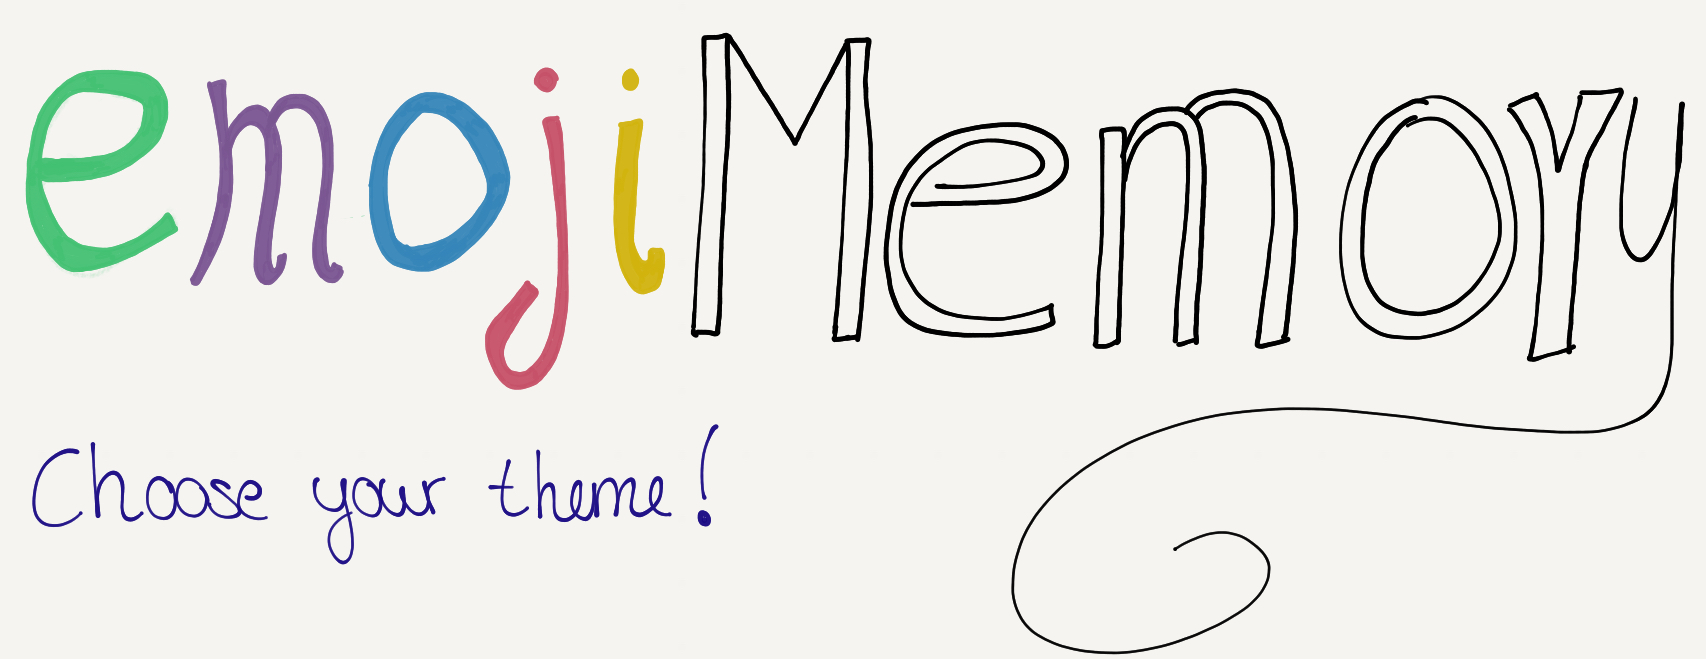 emojiMemory
Choose your theme!